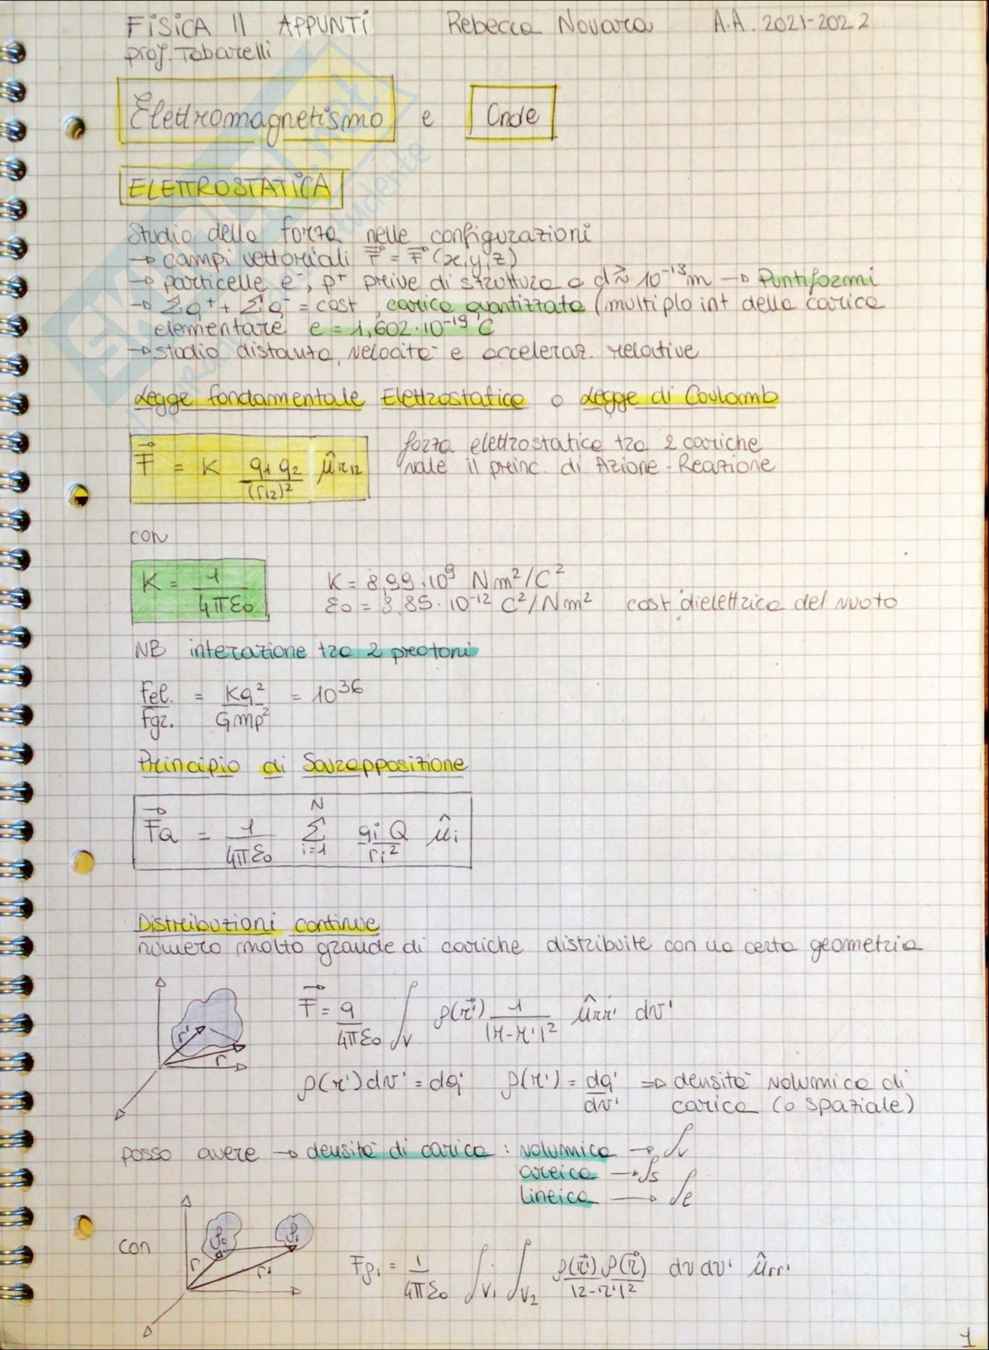 FISICA II APPUNTI Rebecca Novara A.A. 2021-2022
prof. Tabarelli
Elettromagnetismo e Onde
ELETTROSTATICA
Studio della forza nelle configurazioni
→ campi vettoriali F⃗ = F⃗(x,y,z)
→ particelle e⁻, p⁺ prive di struttura a d≈10⁻¹³m → Puntiformi
→ Σq⁺ + Σq⁻ = cost, carica quantizzata (multiplo int della carica
elementare e = 1,602·10⁻¹⁹ C
→ studio distanza, velocità e acceleraz. relative
Legge fondamentale Elettrostatica o Legge di Coulomb
F⃗ = K q₁q₂/(r₁₂)² û_r12 forza elettrostatica tra 2 cariche
vale il princ. di Azione-Reazione
CON
K = 1/4πε₀ K = 8,99·10⁹ Nm²/C²
ε₀ = 8,85·10⁻¹² C²/Nm² cost dielettrica del vuoto
NB interazione tra 2 protoni
Fel./Fgr. = Kq²/Gmp² = 10³⁶
Principio di Sovrapposizione
F⃗Q = 1/4πε₀ Σ_{i=1}^{N} qiQ/ri² ûi
Distribuzioni continue
numero molto grande di cariche distribuite con una certa geometria
r' r
F⃗ = q/4πε₀ ∫_V ρ(r⃗') 1/|r-r'|² û_rr' dv'
ρ(r')dv' = dq' ρ(r') = dq'/dv' ⇒ densità volumica di
carica (o spaziale)
posso avere → densità di carica : volumica → ∫v
areica → ∫s
lineica → ∫e
con r r'
Fρ₁ = 1/4πε₀ ∫_V₁ ∫_V₂ ρ(r⃗')ρ(r⃗)/|r-r'|² dv dv' û_rr'
1